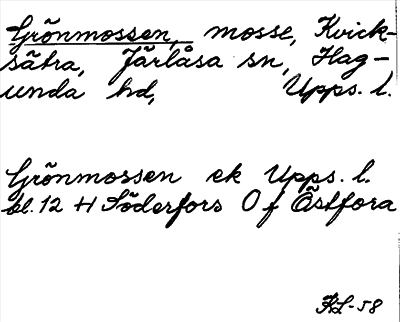 Grönmossen, mosse, Kvick-
sätra, Järlåsa sn, Hag-
unda hd, Upps. l.
Grönmossen ek Upps. l.
bl. 12 H Söderfors O f Östfora
KL-58